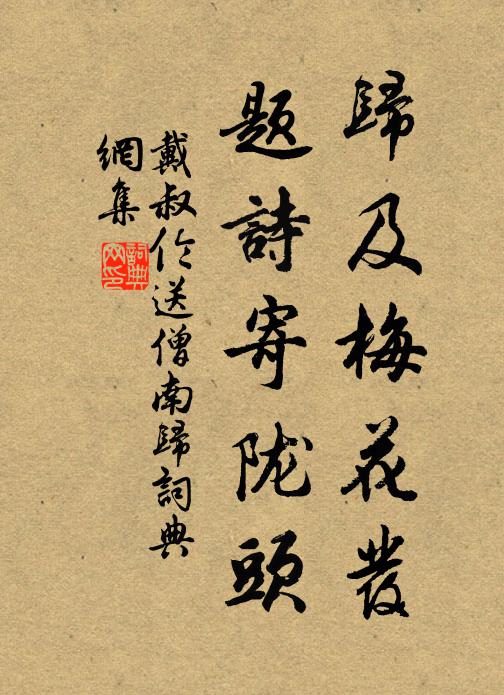 歸及梅花發
題詩寄陇頭
戴叔伦送僧南歸詞典
網集
詞典
网印